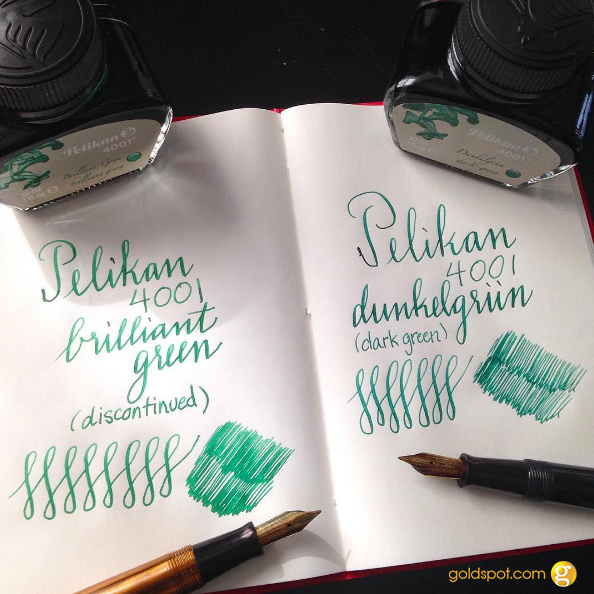 Pelikan
4001
Brillant-Grün
brilliant green
Pelikan
4001
Dunkelgrün
dark green
Pelikan
4001
brilliant
green
(discontinued)
Pelikan
4001
dunkelgrün
(dark green)
goldspot.com g